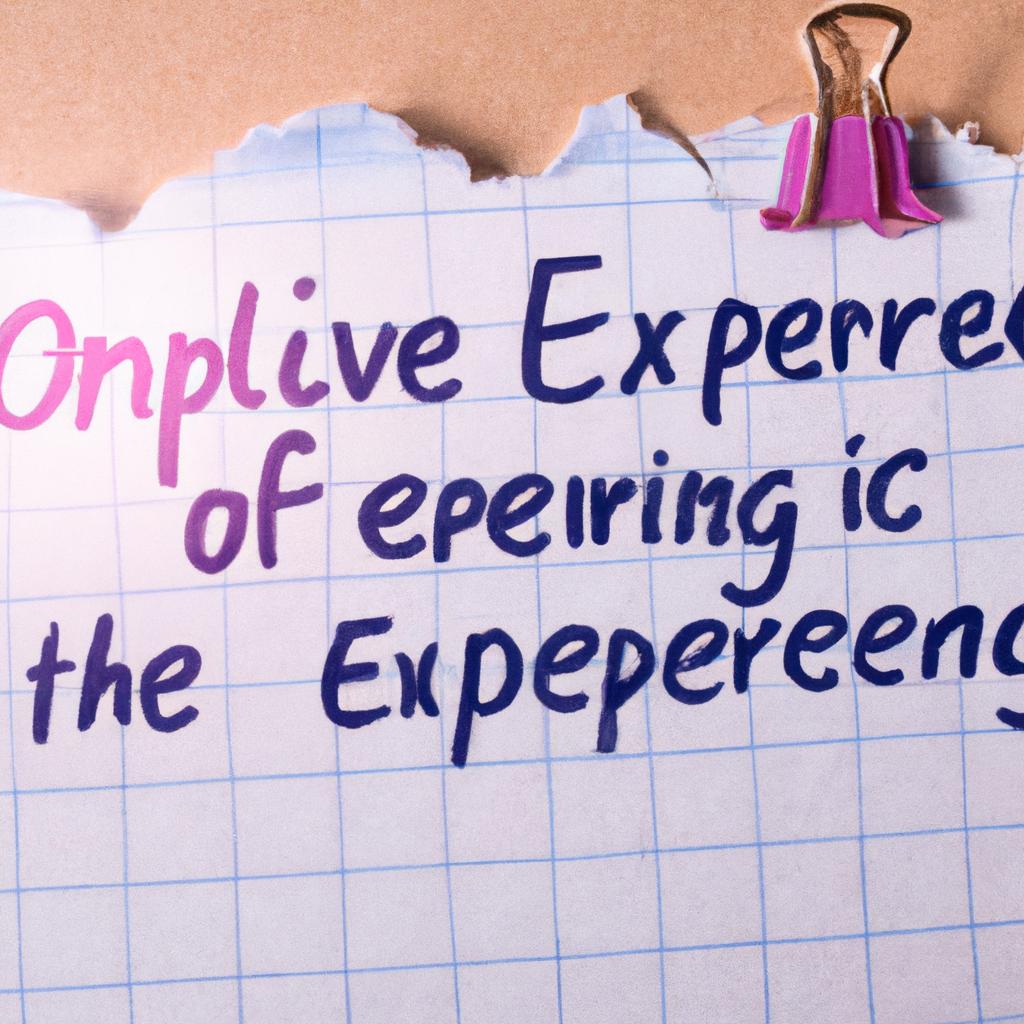 Onplive Experre
of epeiring ic
the Expepereeng